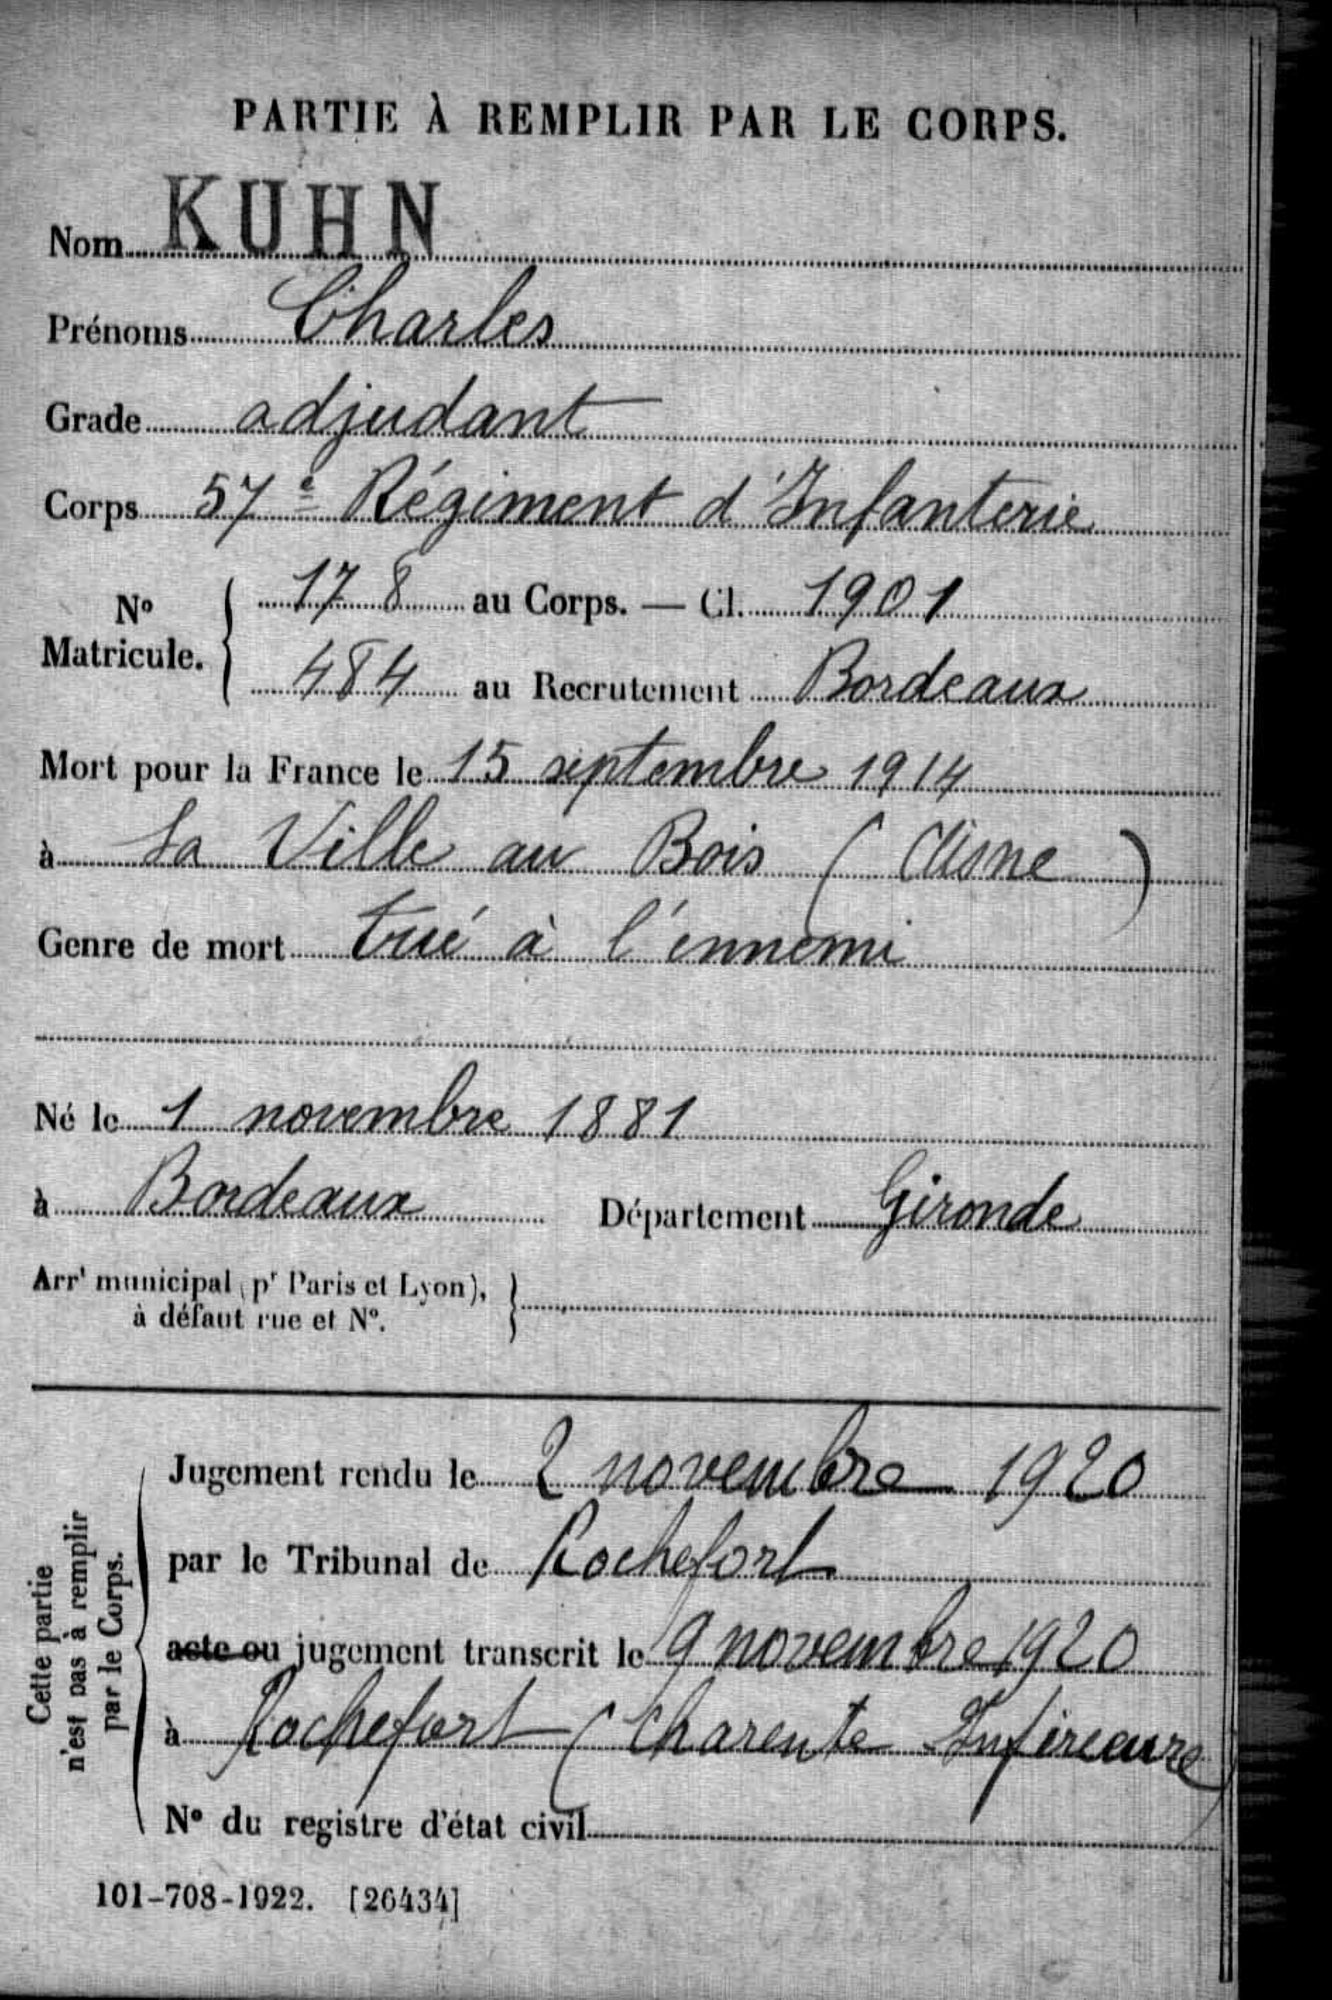 PARTIE À REMPLIR PAR LE CORPS.
Nom KUHN
Prénoms Charles
Grade adjudant
Corps 57e Régiment d'Infanterie
No Matricule. { 178 au Corps. — Cl. 1901
484 au Recrutement Bordeaux
Mort pour la France le 15 septembre 1914
à La Ville au Bois (Aisne)
Genre de mort tué à l'ennemi
Né le 1 novembre 1881
à Bordeaux Département Gironde
Arrt municipal (pr Paris et Lyon), }
à défaut rue et No.
Cette partie
n'est pas à remplir
par le Corps.
Jugement rendu le 2 novembre 1920
par le Tribunal de Rochefort
acte ou jugement transcrit le 9 novembre 1920
à Rochefort (Charente Inférieure)
No du registre d'état civil
101-708-1922. [26434]